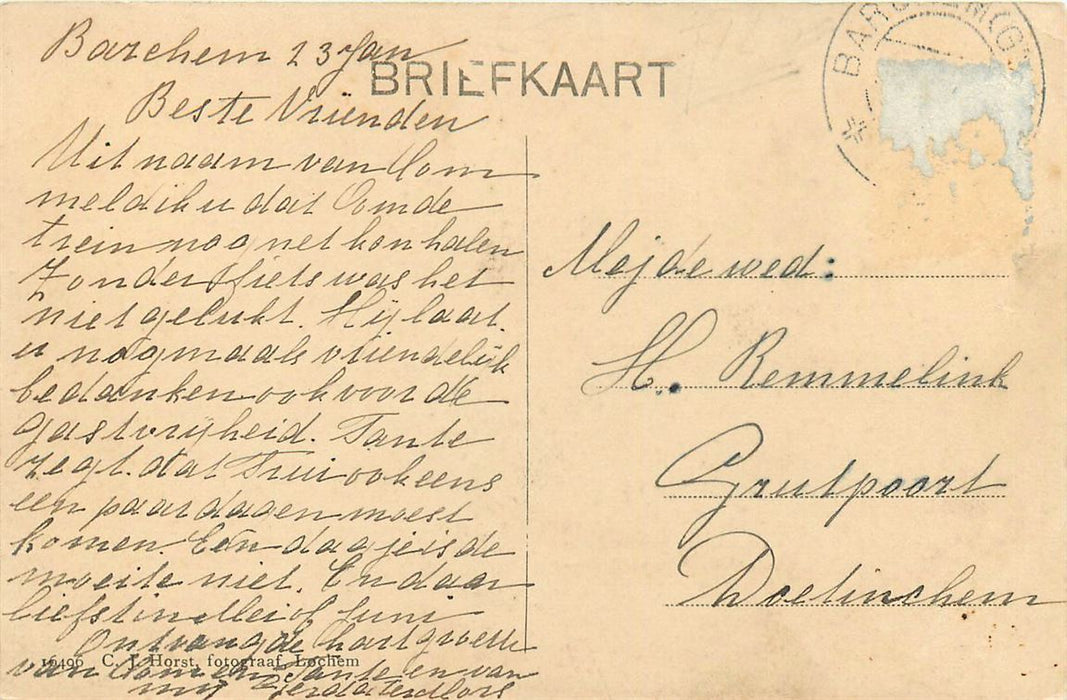 Barchem 23 Jan
BRIEFKAART
BARCHEM (G
Beste Vrienden
Uit naam van Oom
meld ik u dat Oom de
trein nog net kon halen
Zonder fiets was het
niet gelukt. Hij laat
u nogmaals vriendelijk
bedanken ook voor de
gastvrijheid. Tante
zegt dat Trui ook eens
een paar dagen moest
komen. Eén dagje is de
moeite niet. En daar
liefst in Mei of Juni
Ontvang de hart groeten
van Oom en Tante en van
mij
16496 C. J. Horst, fotograaf, Lochem
Mej de wed:
H. Remmelink
Grutpoort
Doetinchem